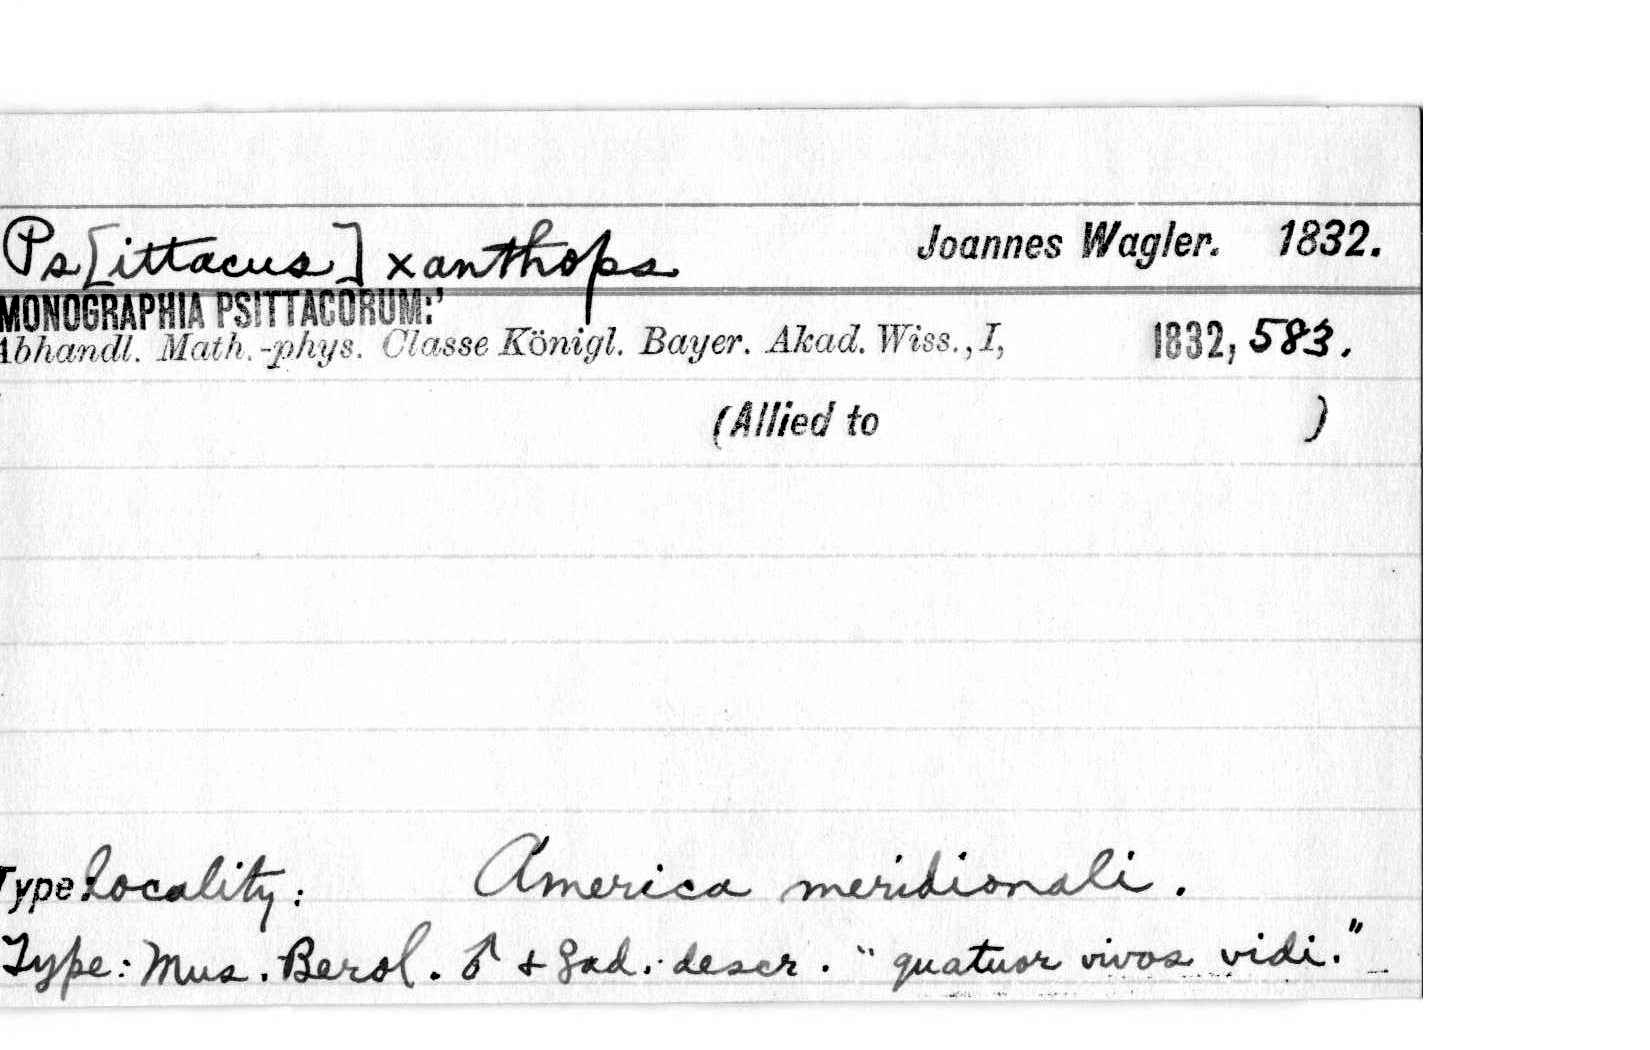 Ps[ittacus] xanthops Joannes Wagler. 1832.
MONOGRAPHIA PSITTACORUM:'
Abhandl. Math.-phys. Classe Königl. Bayer. Akad. Wiss., I, 1832, 583.
(Allied to )
Type locality: America meridionali.
Type: Mus. Berol. ♂ + ad. descr. "quatuor vivos vidi."